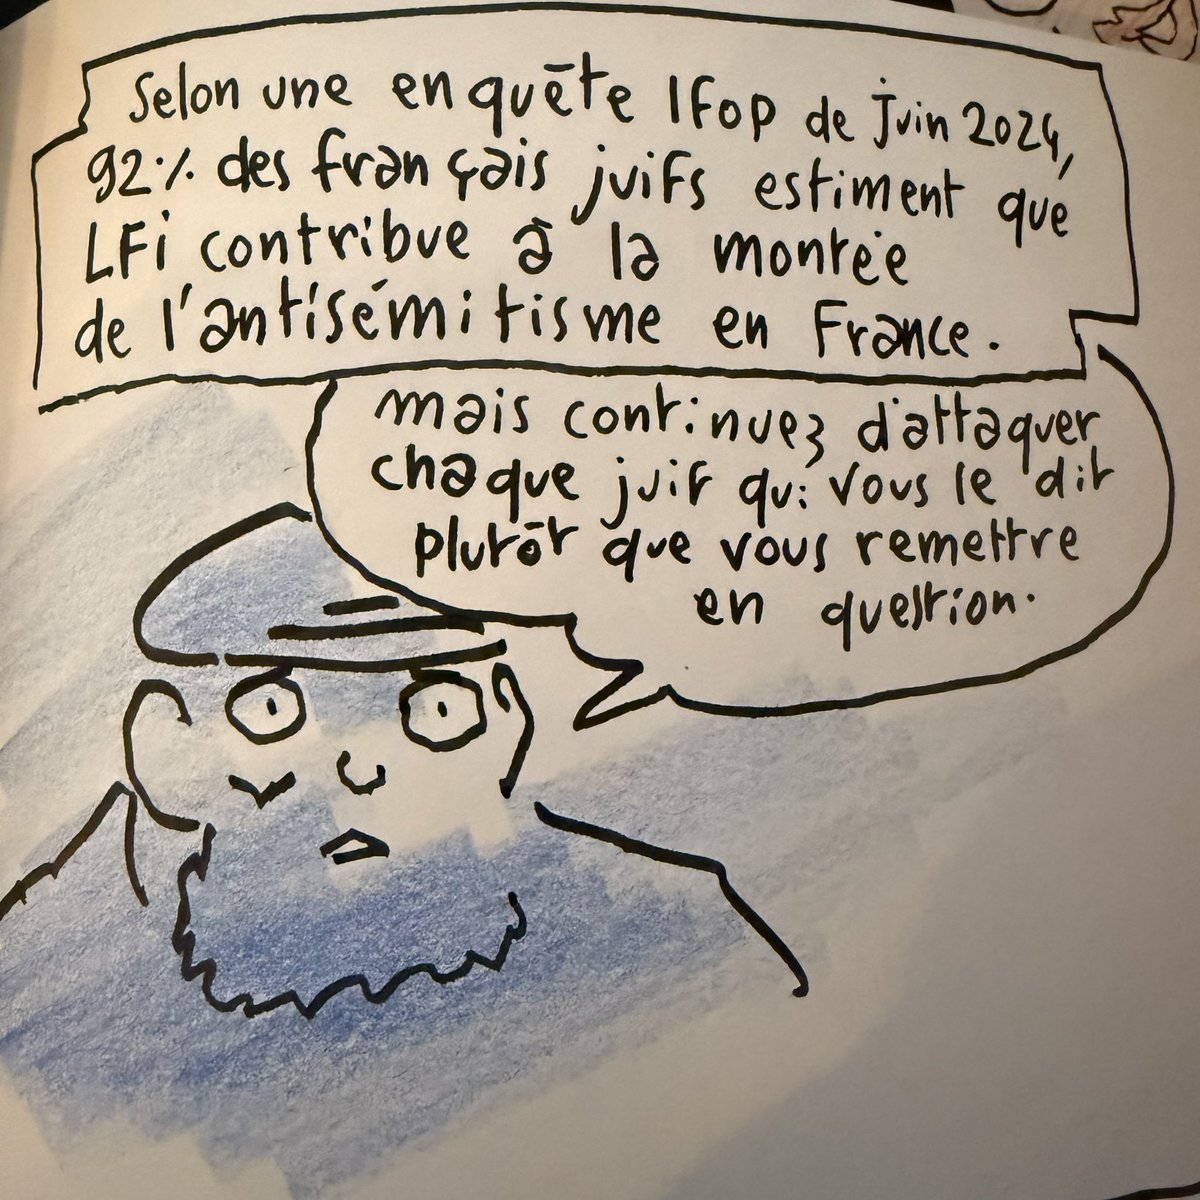 Selon une enquête IFOP de juin 2024,
92% des français juifs estiment que
LFi contribue à la montée
de l'antisémitisme en France.
mais continuez d'attaquer
chaque juif qui vous le dit
plutôt que vous remettre
en question.